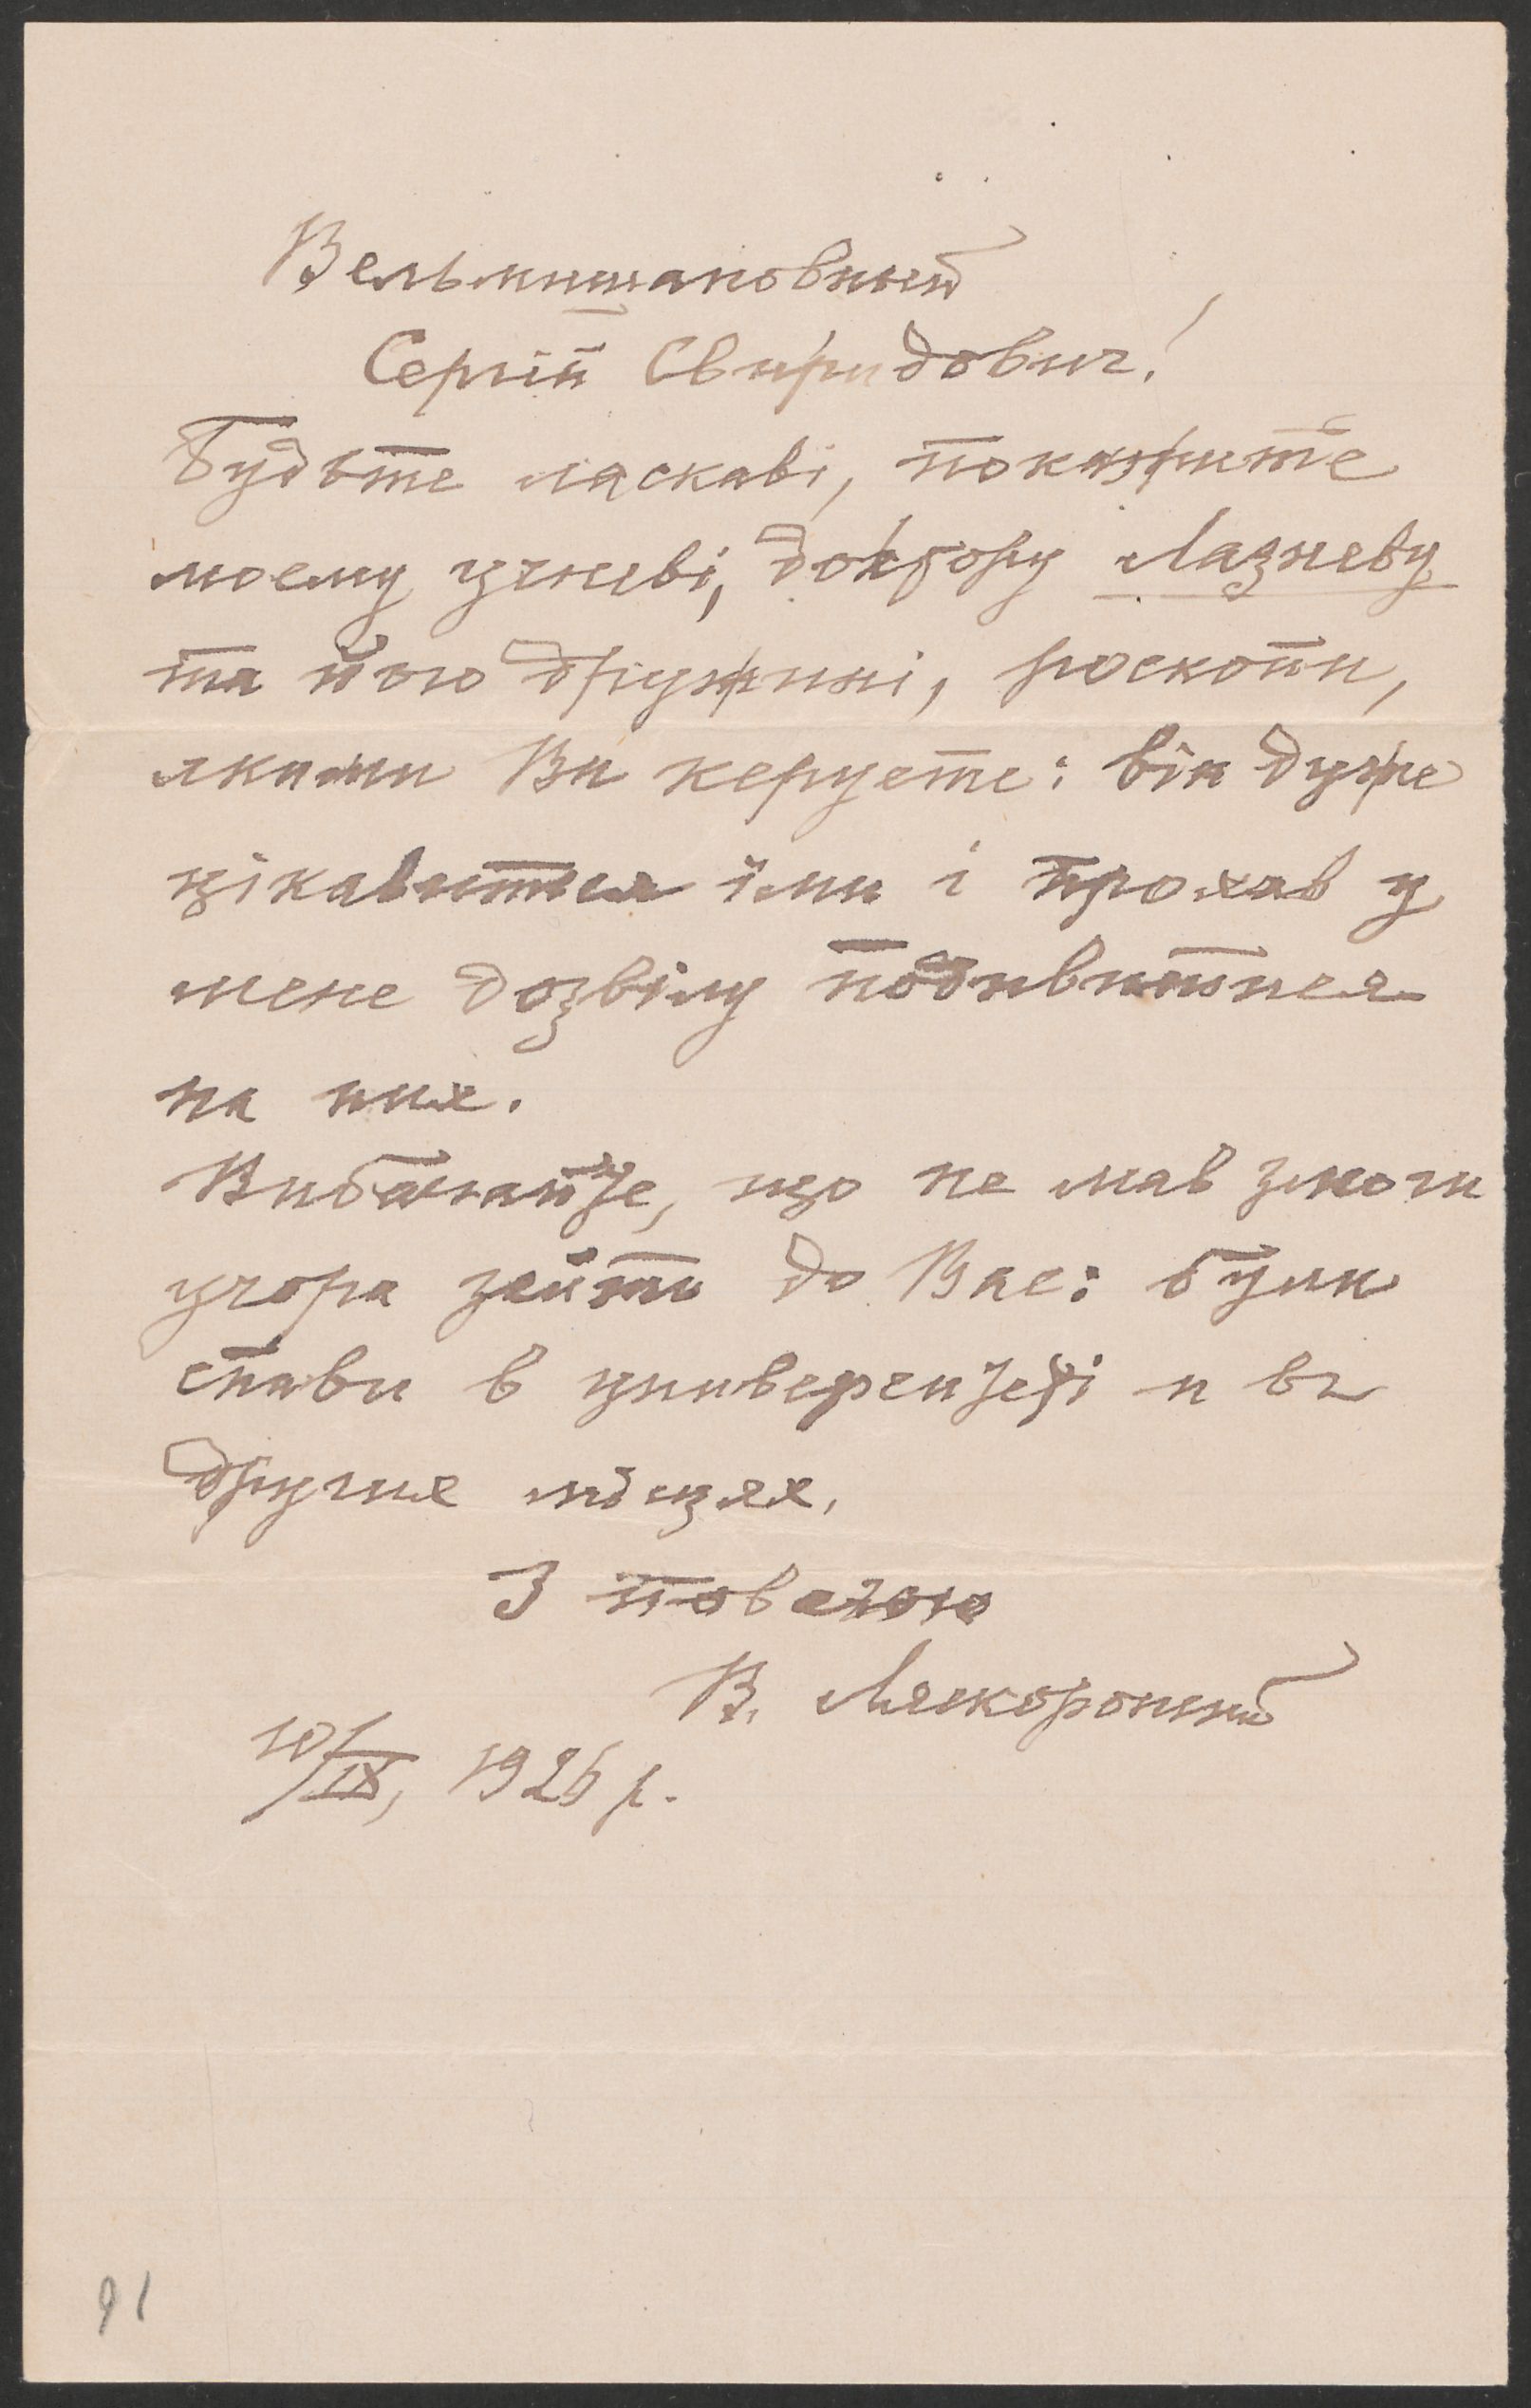 Вельмишановний
Сергій Свиридович!
Будьте ласкаві, покажите
моему учневі, доктору Лазневу
та його дружині, роскопи,
якими Ви керуете: він дуже
цікавиться їми і прохав у
мене дозвілу подивитися
на них.
Вибачайте, що не мав змоги
учора зайти до Вас: були
спави в университеті и в
других місцях.
З повагою
В. Ляскоронський
10/IX, 1926 р.
91